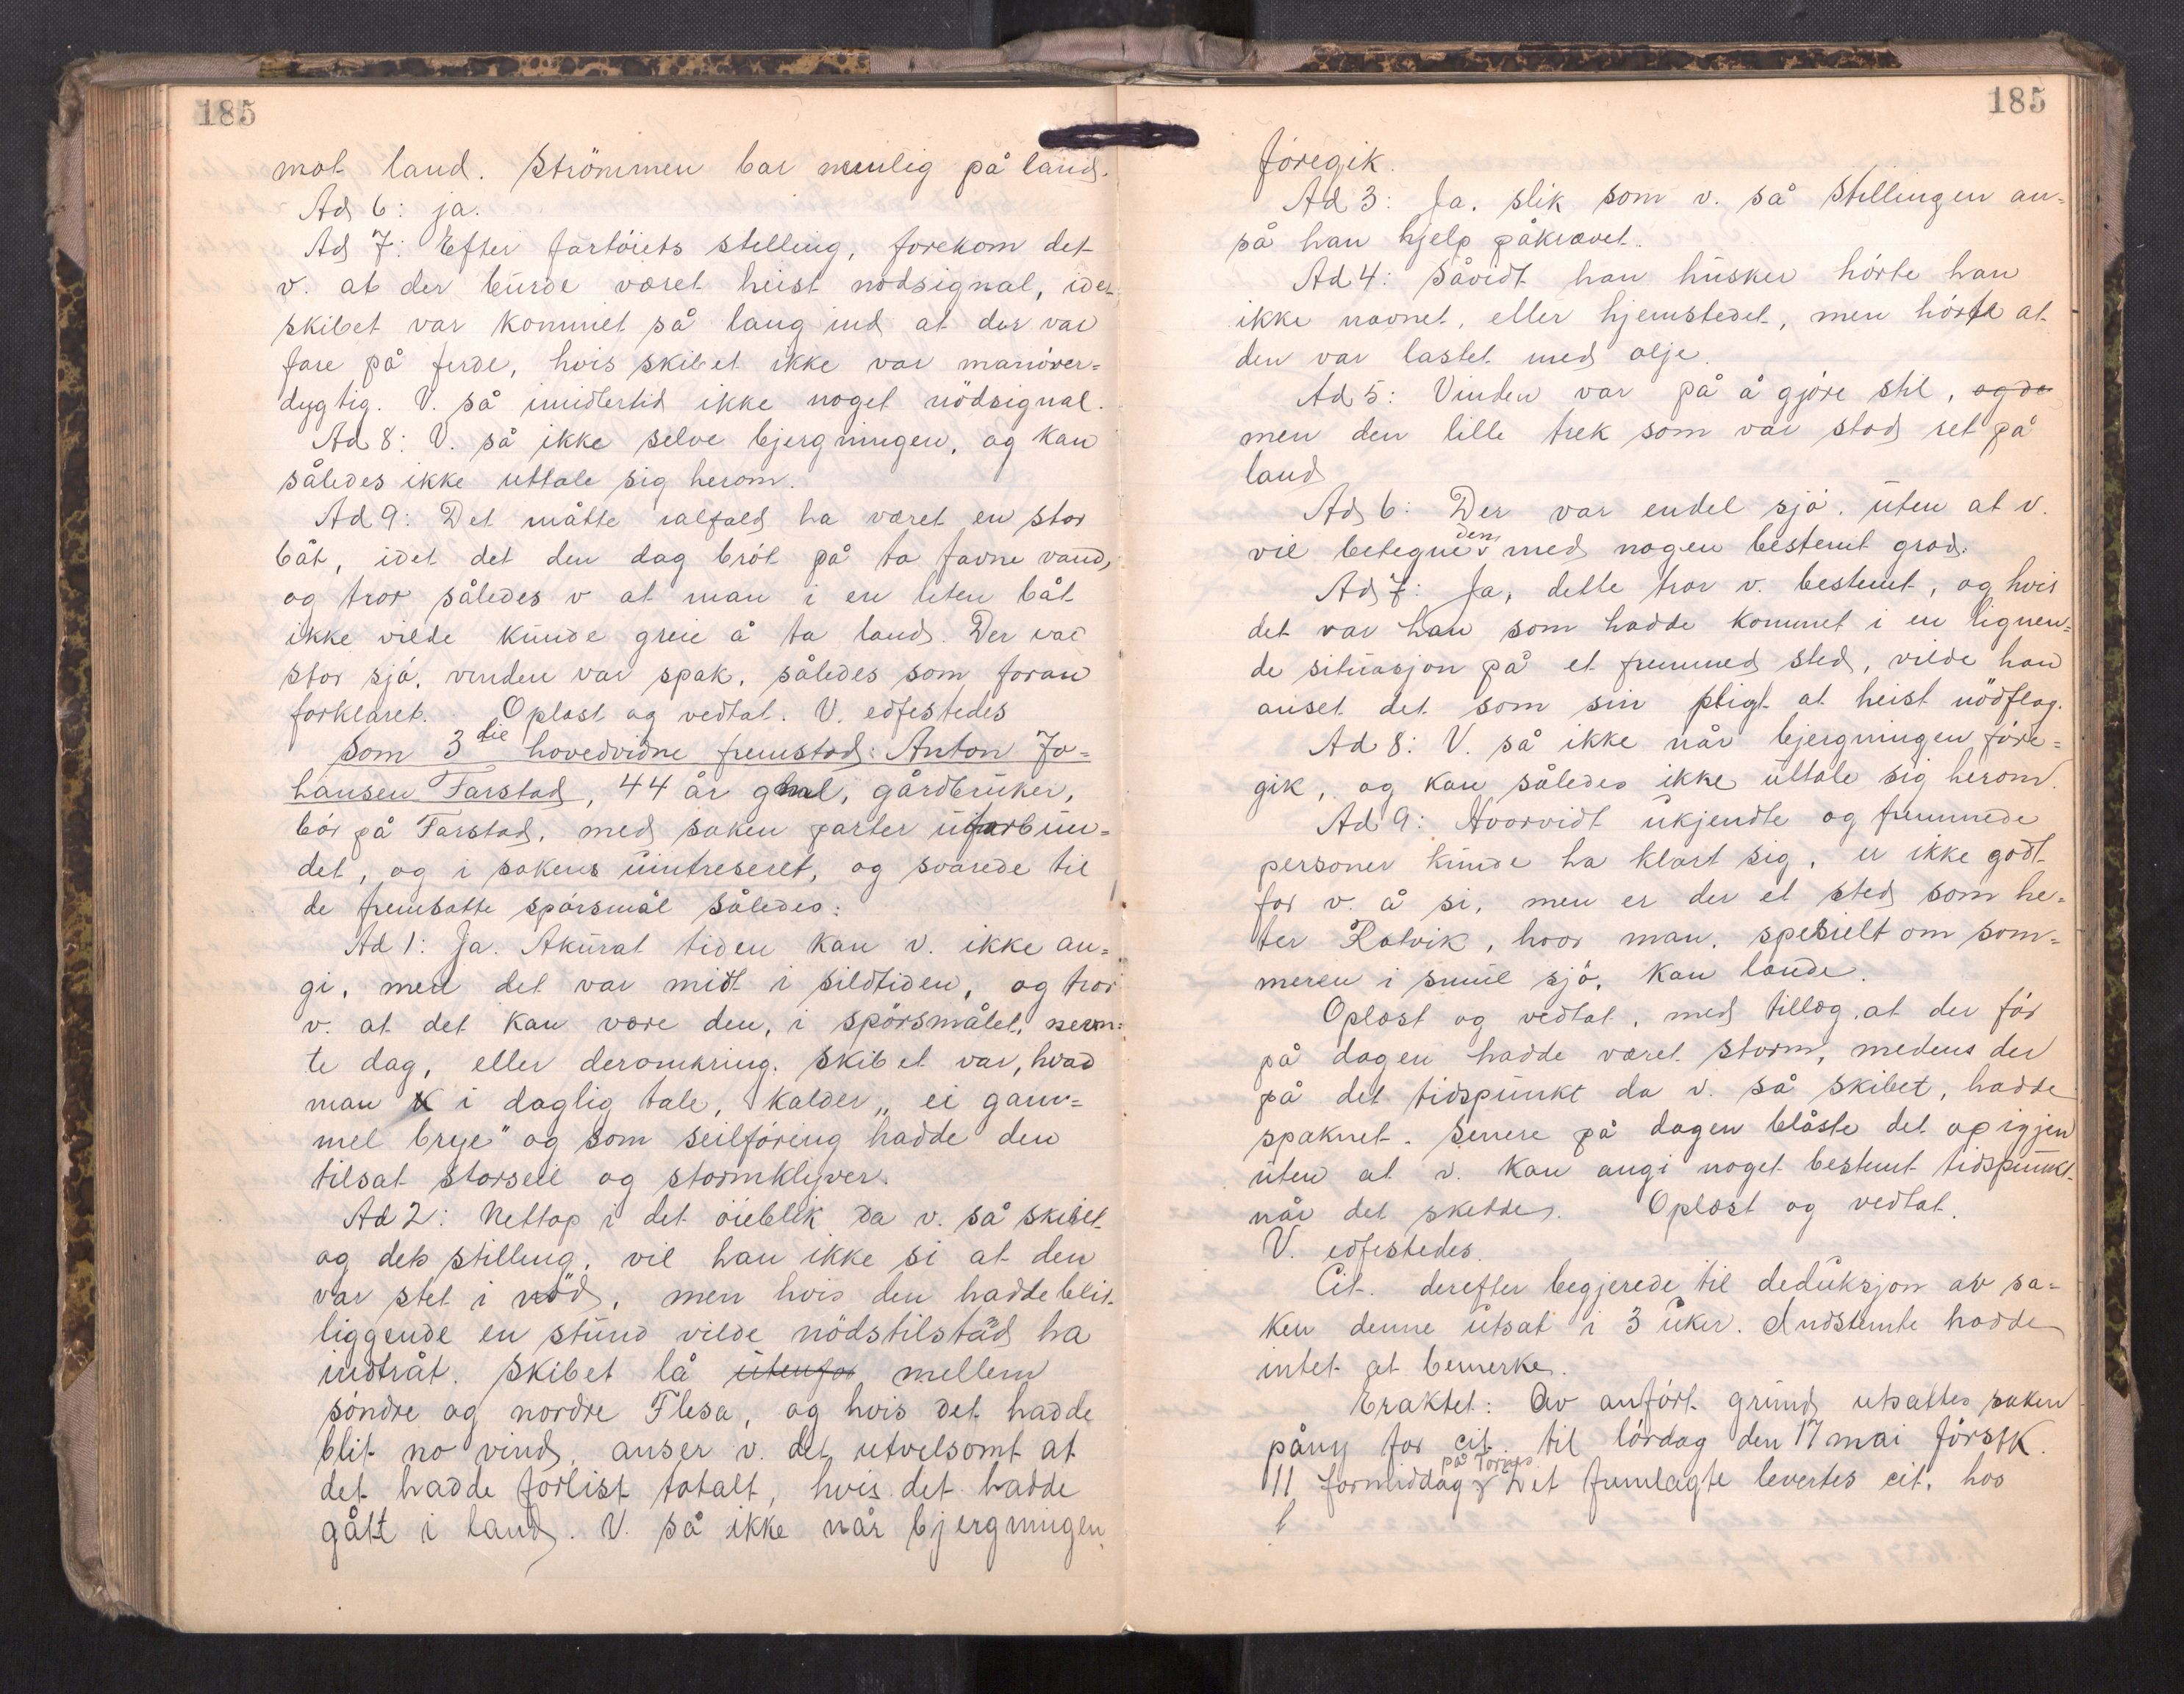 185
mot land. Strömmen bar mulig på land.
Ad 6: ja.
Ad 7: Efter fartöiets stelling, forekom det
v. at der burde været heist nödsignal, idet
skibet var kommet så langt ind at der var
fare på ferde, hvis skibet ikke var manöver-
dygtig. V. så imidlertid ikke noget nödsignal.
Ad 8: V. så ikke selve bjergningen, og kan
således ikke uttale sig herom.
Ad 9: Det måtte ialfald ha været en stor
båt, idet det den dag bröt på to favne vand,
og tror således v at man i en liten båt
ikke vilde kunde greie å ta land. Der var
stor sjö, vinden var spak, således som foran
forklaret. Oplæst og vedtat. V. edfestedes
Som 3die hovedvidne fremstod: Anton Jo-
hansen Farstad, 44 år gml, gårdbruker,
bör på Farstad, med saken parter uforbun-
det, og i sakens uintreseret, og svarede til
de fremsatte spörsmål således:
Ad 1: Ja. Akurat tiden kan v. ikke an-
gi, men det var midt i sildtiden, og tror
v. at det kan være den, i spörsmålet, nevn-
te dag, eller deromkring. Skibet var, hvad
man i daglig tale, kalder "ei gam-
mel brye" og som seilföring hadde den
tilsat storseil og stormklyver.
Ad 2: Nettop i det öieblik da v. så skibet
og dets stilling, vil han ikke si at den
var stet i nöd, men hvis den hadde blit
liggende en stund vilde nödstilstand ha
indtråt. Skibet lå utenfor mellem
söndre og nordre Flesa, og hvis det hadde
blit no vind, anser v. det utvelsomt at
det hadde forlist totalt, hvis det hadde
gått i land. V. så ikke når bjergningen
185
foregik.
Ad 3: Ja. slik som v. så stillingen an-
så han hjelp påkrævet.
Ad 4: Såvidt han husker hörte han
ikke navnet, eller hjemstedet, men hörte at
den var lastet med olje.
Ad 5: Vinden var på å gjöre stil, og de
men den lille trek som var stod ret på
land
Ad 6: Der var endel sjö, uten at v.
vil betegne den med nogen bestemt grad.
Ad 7: Ja, dette tror v. bestemt, og hvis
det var han som hadde kommet i en lignen-
de situasjon på et fremmed sted, vilde han
anset det som sin pligt at heist nödflag.
Ad 8: V. så ikke når bjergningen före-
gik, og kan således ikke uttale sig herom.
Ad 9: Hvorvidt ukjendte og fremmede
personer kunde ha klart sig, er ikke godt
for v. å si, men er der et sted som he-
ter Ratvik, hvor man, spesielt om som-
meren i smul sjö, kan lande.
Oplæst og vedtat, med tillæg, at der för
på dagen hadde været storm, medens der
på det tidspunkt da v. så skibet, hadde
spaknet. Senere på dagen blåste det op igjen
uten at v. kan angi noget bestemt tidspunkt
når det skedde. Oplæst og vedtat.
V. edfestedes.
Cit. derefter begjerede til deduksjon av sa-
ken denne utsat i 3 uker. Indstemte hadde
intet at bemerke.
Eraktet: Av anfört grund utsattes saken
påny for cit. til lördag den 17 mai förstk.
11 formiddag på Tornes. Det fremlagte levertes cit. hos